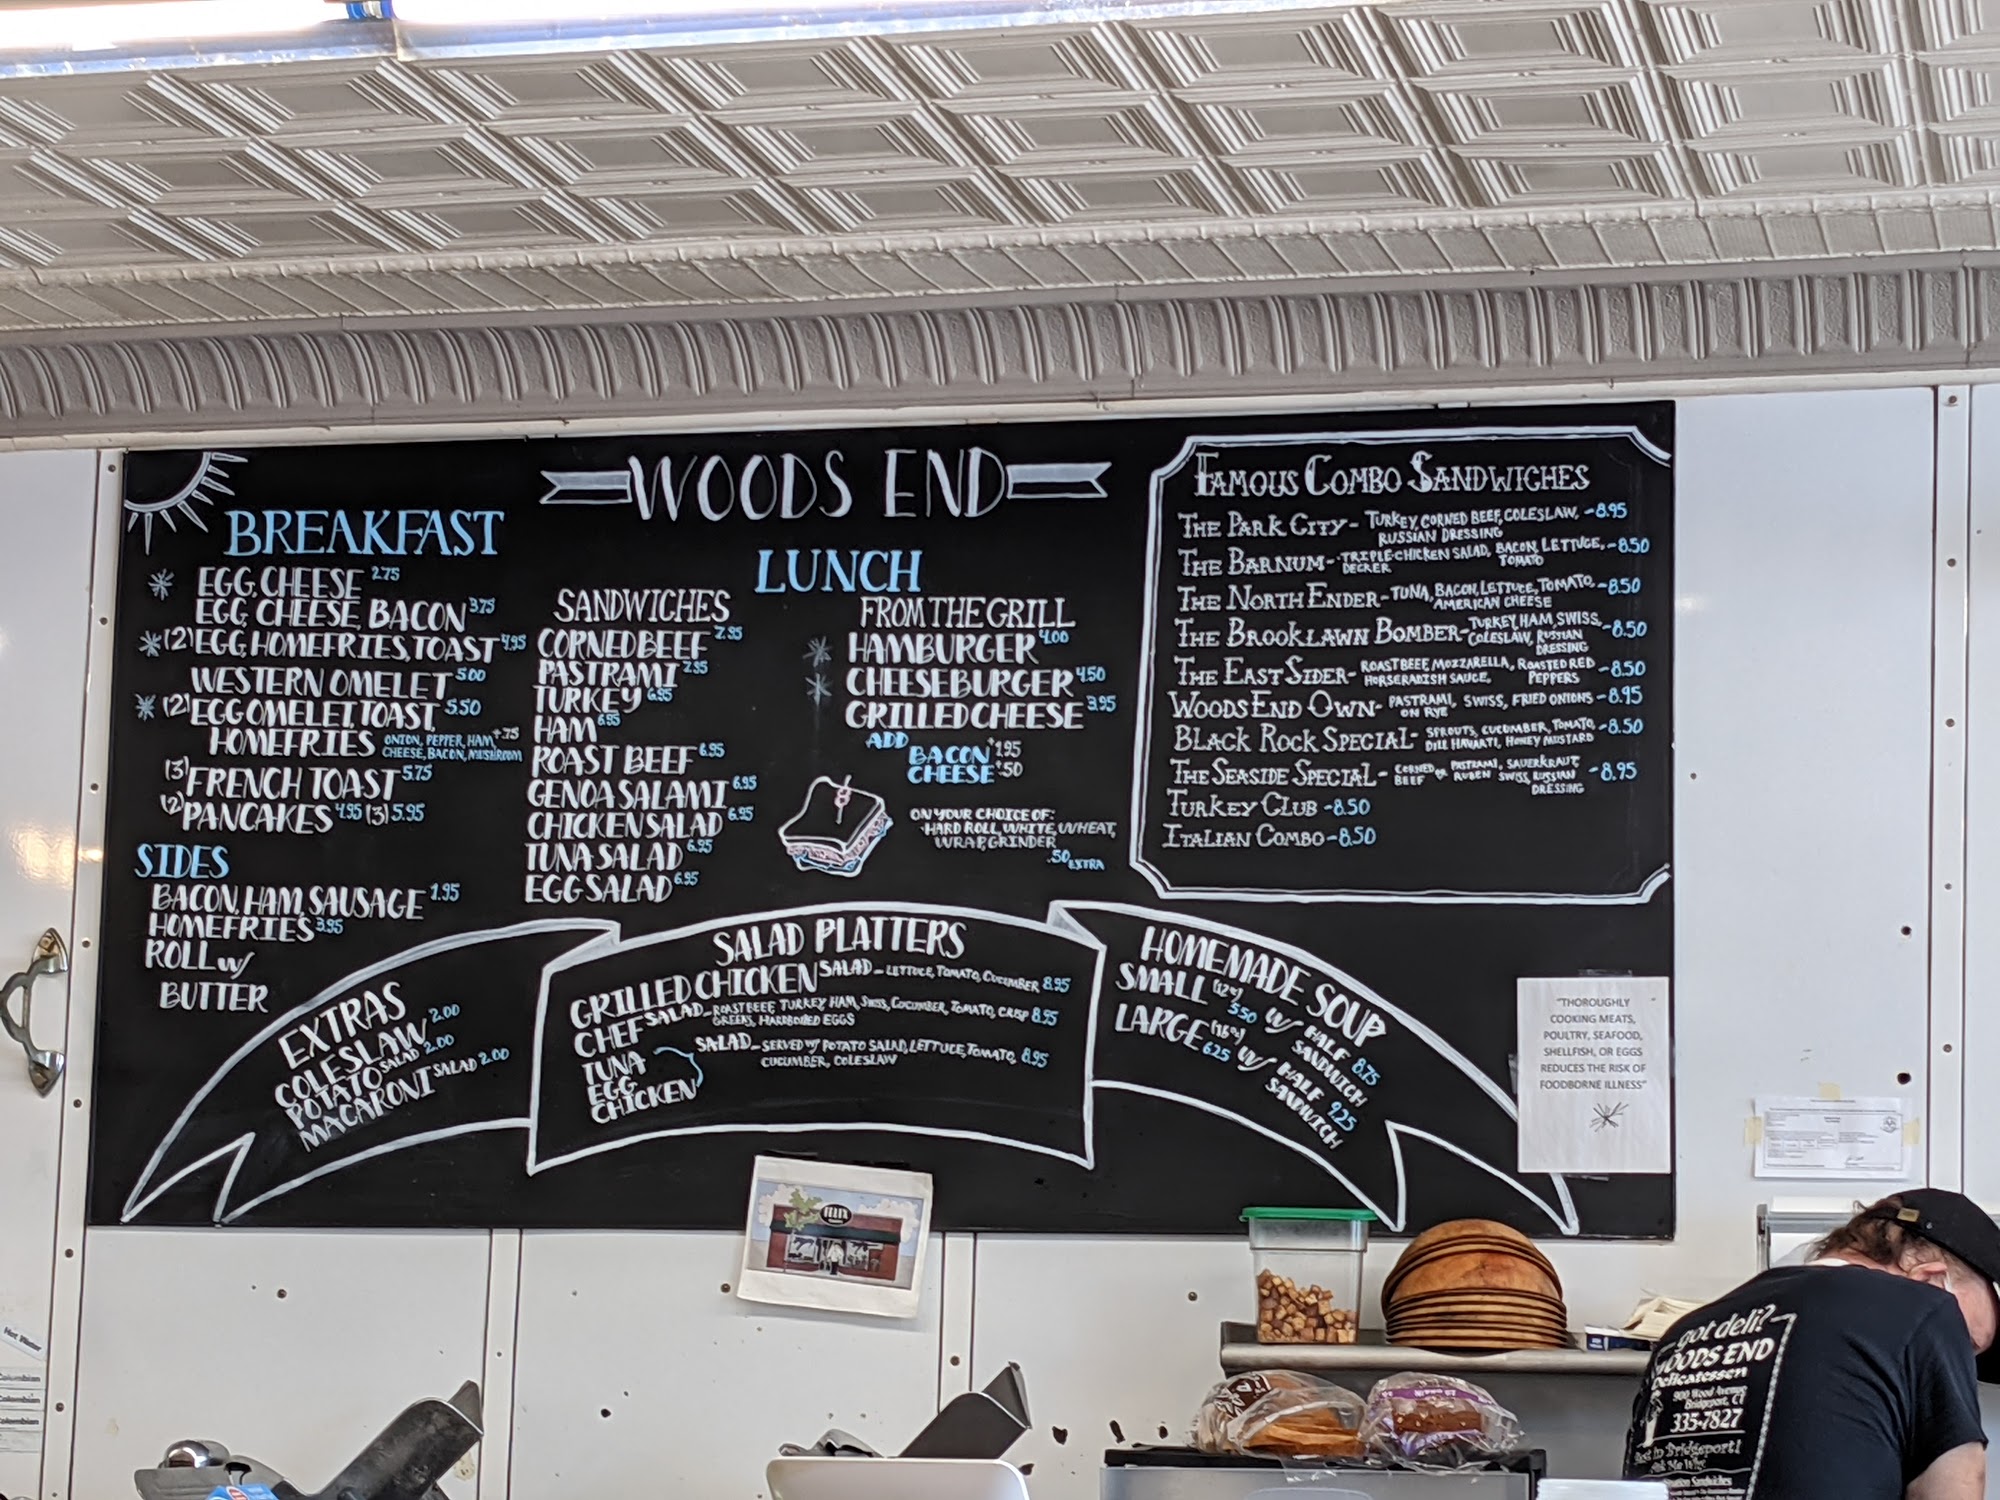 WOODS END
BREAKFAST
EGG, CHEESE 2.75
EGG, CHEESE, BACON 3.75
(2) EGG, HOMEFRIES, TOAST 4.95
WESTERN OMELET 5.00
(2) EGG OMELET, TOAST, 5.50
HOMEFRIES ONION, PEPPER, HAM, +.75
CHEESE, BACON, MUSHROOM
(3) FRENCH TOAST 5.75
(2) PANCAKES 4.95 (3) 5.95
SIDES
BACON, HAM, SAUSAGE 1.95
HOMEFRIES 3.95
ROLL W/
BUTTER
LUNCH
SANDWICHES
CORNED BEEF 7.95
PASTRAMI 7.95
TURKEY 6.95
HAM 6.95
ROAST BEEF 6.95
GENOA SALAMI 6.95
CHICKEN SALAD 6.95
TUNA SALAD 6.95
EGG SALAD 6.95
FROM THE GRILL
HAMBURGER 4.00
CHEESEBURGER 4.50
GRILLED CHEESE 3.95
ADD
BACON +1.95
CHEESE +.50
ON YOUR CHOICE OF:
HARD ROLL, WHITE, WHEAT,
WRAP, GRINDER
.50 EXTRA
FAMOUS COMBO SANDWICHES
THE PARK CITY - TURKEY, CORNED BEEF, COLESLAW, - 8.95
RUSSIAN DRESSING
THE BARNUM - TRIPLE- CHICKEN SALAD, BACON, LETTUCE, - 8.50
DECKER TOMATO
THE NORTH ENDER - TUNA, BACON, LETTUCE, TOMATO, - 8.50
AMERICAN CHEESE
THE BROOKLAWN BOMBER - TURKEY, HAM, SWISS, - 8.50
COLESLAW, RUSSIAN
DRESSING
THE EAST SIDER - ROAST BEEF, MOZZARELLA, ROASTED RED - 8.50
HORSERADISH SAUCE, PEPPERS
WOODS END OWN - PASTRAMI, SWISS, FRIED ONIONS - 8.95
ON RYE
BLACK ROCK SPECIAL - SPROUTS, CUCUMBER, TOMATO, - 8.50
DILL HAVARTI, HONEY MUSTARD
THE SEASIDE SPECIAL - CORNED OR PASTRAMI, SAUERKRAUT, - 8.95
BEEF RUBEN SWISS, RUSSIAN
DRESSING
TURKEY CLUB - 8.50
ITALIAN COMBO - 8.50
EXTRAS
COLESLAW 2.00
POTATO SALAD 2.00
MACARONI SALAD 2.00
SALAD PLATTERS
GRILLED CHICKEN SALAD - LETTUCE, TOMATO, CUCUMBER 8.95
CHEF SALAD - ROAST BEEF, TURKEY, HAM, SWISS, CUCUMBER, TOMATO, CRISP 8.95
GREENS, HARDBOILED EGGS
TUNA SALAD - SERVED W/ POTATO SALAD, LETTUCE, TOMATO, 8.95
EGG CUCUMBER, COLESLAW
CHICKEN
HOMEMADE SOUP
SMALL (12oz) 5.50 W/ HALF SANDWICH 8.75
LARGE (16oz) 6.25 W/ HALF SANDWICH 9.25
"THOROUGHLY
COOKING MEATS,
POULTRY, SEAFOOD,
SHELLFISH, OR EGGS
REDUCES THE RISK OF
FOODBORNE ILLNESS"
got deli?
WOODS END
Delicatessen
900 Wood Avenue
Bridgeport, CT
335-7827
Hot Water
Colombian
Colombian
Colombian